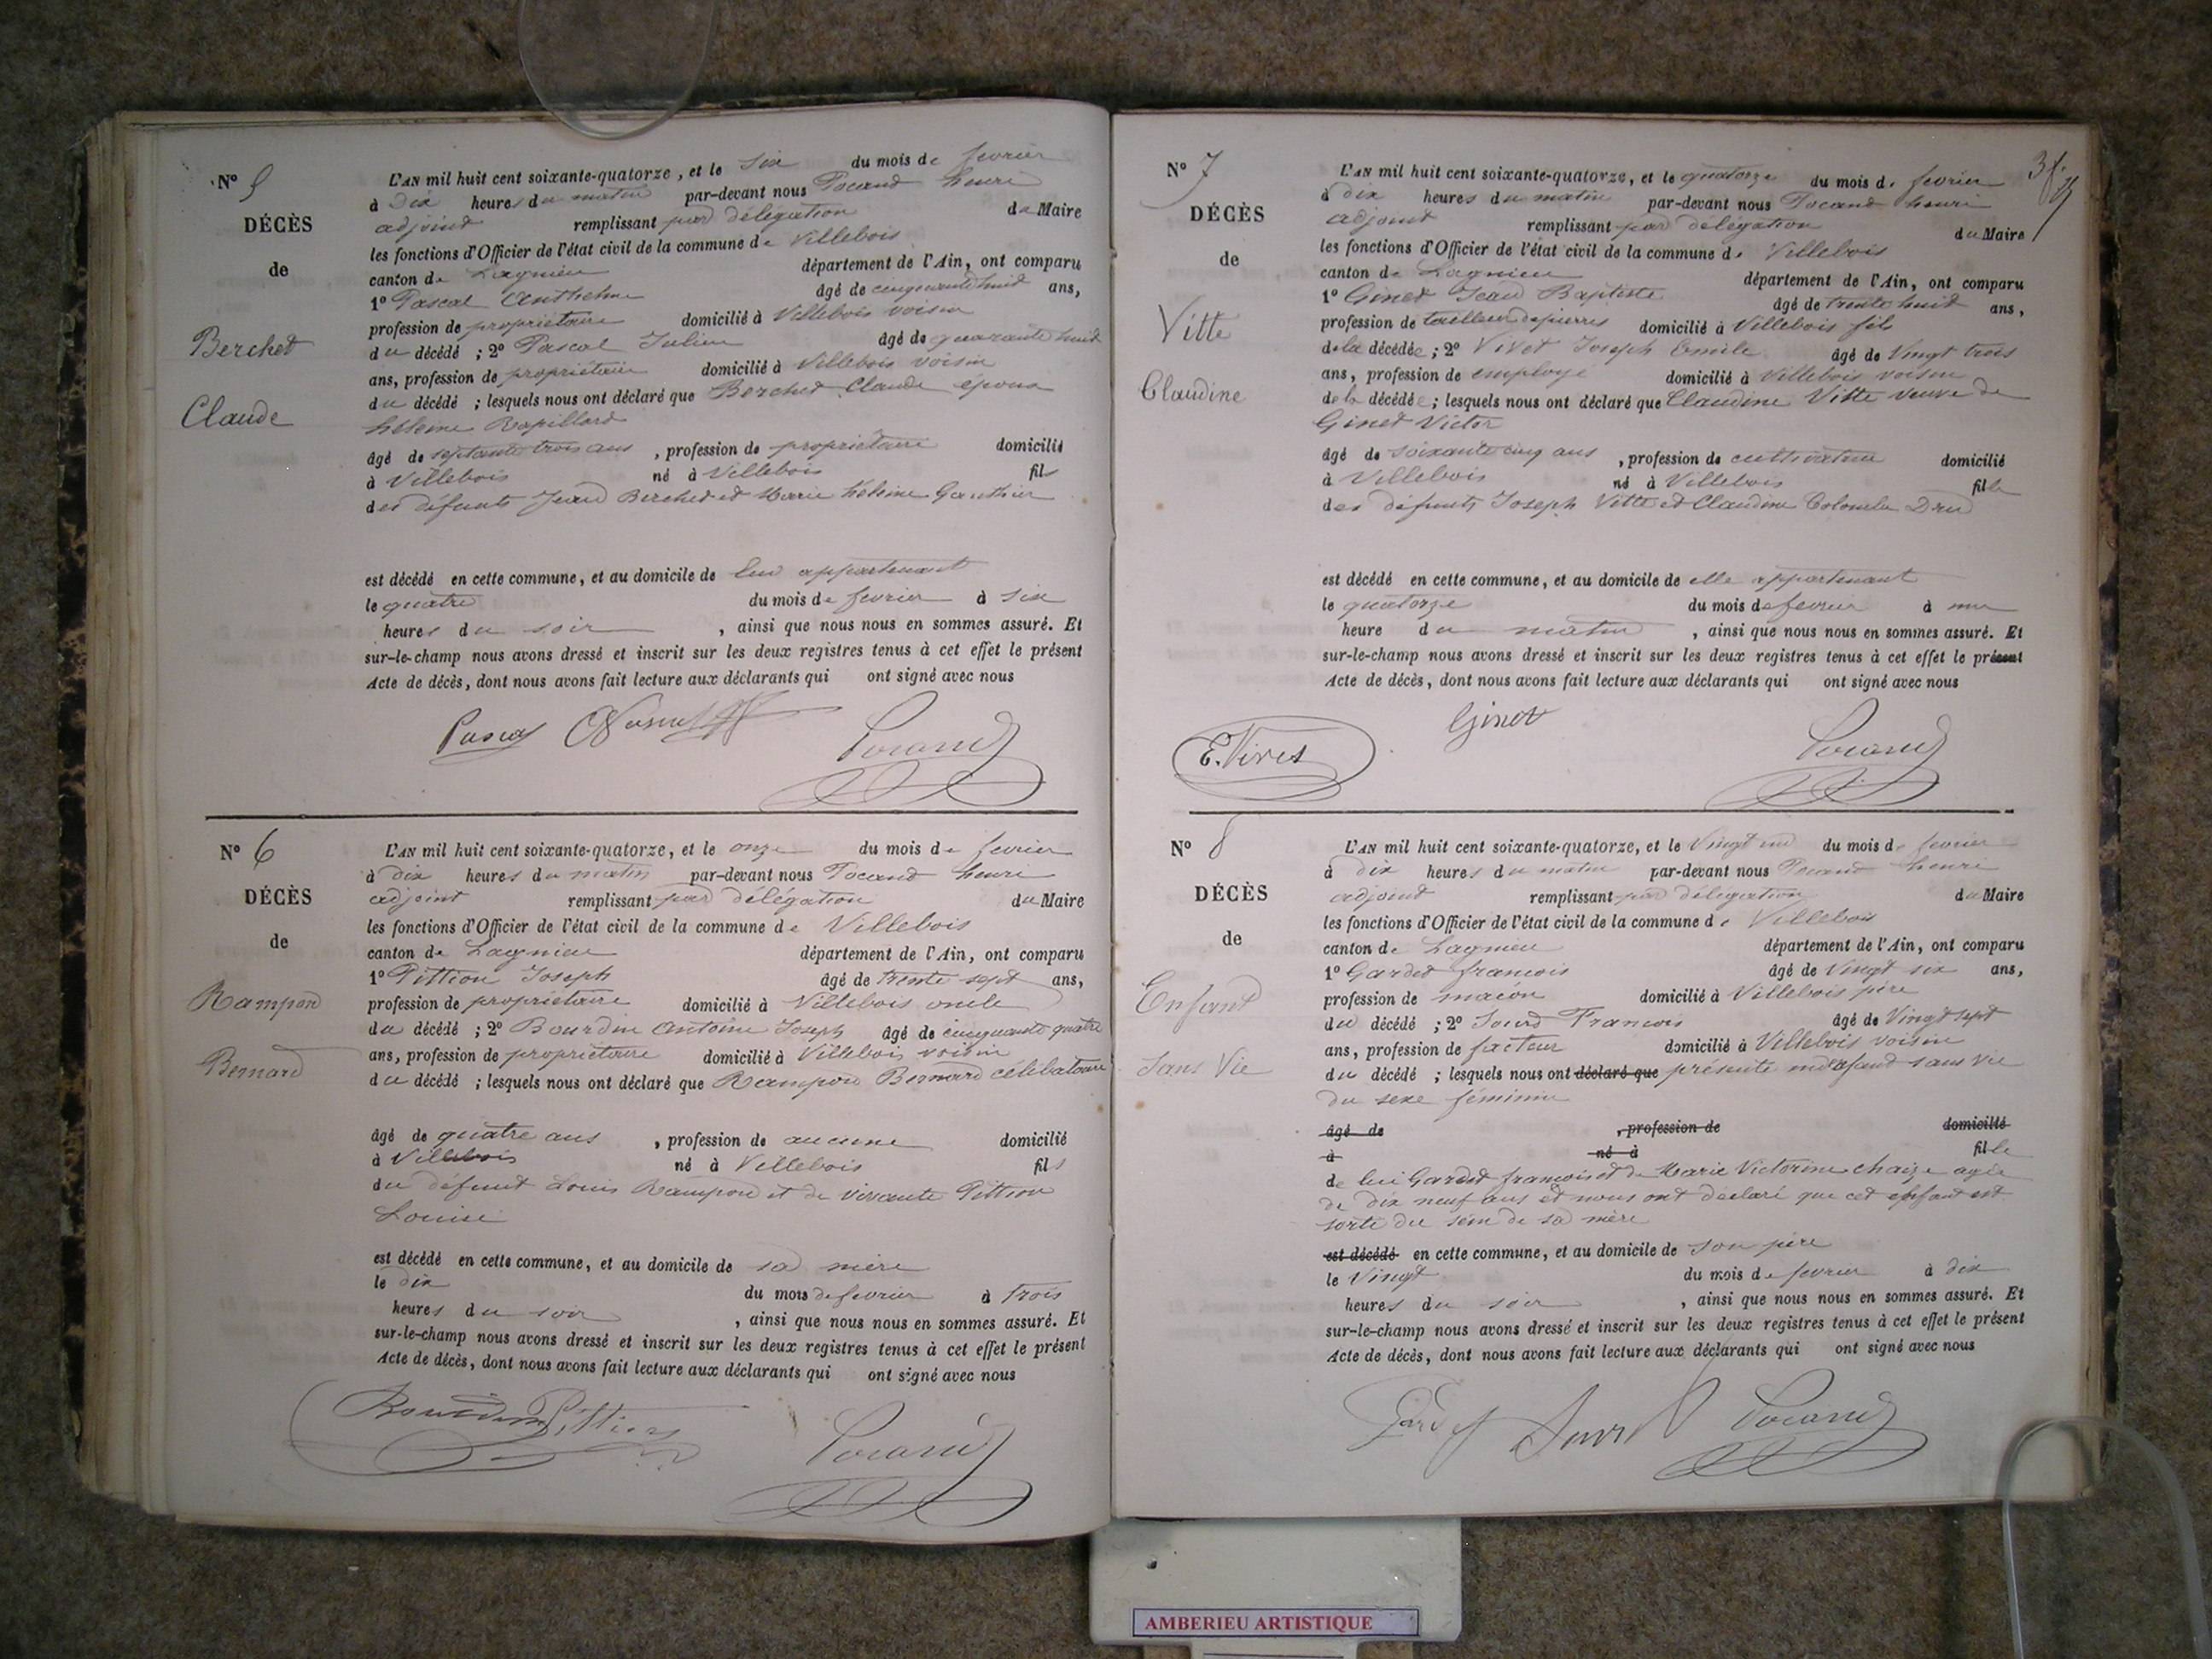 N° 5
DÉCÈS
de
Berchet
Claude
L'AN mil huit cent soixante-quatorze, et le six du mois de fevrier
à Dix heures du matin par-devant nous Pocand henri
adjoint remplissant par délégation du Maire
les fonctions d'Officier de l'état civil de la commune de Villebois
canton de Lagnieu département de l'Ain, ont comparu
1° Pascal Anthelme âgé de cinquante huit ans,
profession de propriétaire domicilié à Villebois voisin
du décédé ; 2° Pascal Julien âgé de quarante huit
ans, profession de propriétaire domicilié à Villebois voisin
du décédé ; lesquels nous ont déclaré que Berchet Claude époux
héleine Rapillard
âgé de septante trois ans , profession de propriétaire domicilié
à Villebois né à Villebois fils
des défunts Jean Berchet et Marie héleine Gauthier
est décédé en cette commune, et au domicile de lui appartenant
le quatre du mois de fevrier à six
heures du soir , ainsi que nous nous en sommes assuré. Et
sur-le-champ nous avons dressé et inscrit sur les deux registres tenus à cet effet le présent
Acte de décès, dont nous avons fait lecture aux déclarants qui ont signé avec nous
Pascal Pocand
N° 6
DÉCÈS
de
Rampon
Bernard
L'AN mil huit cent soixante-quatorze, et le onze du mois de fevrier
à dix heures du matin par-devant nous Pocand henri
adjoint remplissant par délégation du Maire
les fonctions d'Officier de l'état civil de la commune de Villebois
canton de Lagnieu département de l'Ain, ont comparu
1° Pittion Joseph âgé de trente sept ans,
profession de propriétaire domicilié à Villebois oncle
du décédé ; 2° Bourdin Antoine Joseph âgé de cinquante quatre
ans, profession de propriétaire domicilié à Villebois voisin
du décédé ; lesquels nous ont déclaré que Rampon Bernard célibataire
âgé de quatre ans , profession de aucune domicilié
à Villebois né à Villebois fils
du defunt Louis Rampon et de vivante Pittion
Louise
est décédé en cette commune, et au domicile de sa mère
le dix du mois de fevrier à trois
heures du soir , ainsi que nous nous en sommes assuré. Et
sur-le-champ nous avons dressé et inscrit sur les deux registres tenus à cet effet le présent
Acte de décès, dont nous avons fait lecture aux déclarants qui ont signé avec nous
Bourdin Pittion Pocand
N° 7
DÉCÈS
de
Vitte
Claudine
L'AN mil huit cent soixante-quatorze, et le quatorze du mois de fevrier
à dix heures du matin par-devant nous Pocand henri
adjoint remplissant par délégation du Maire
les fonctions d'Officier de l'état civil de la commune de Villebois
canton de Lagnieu département de l'Ain, ont comparu
1° Ginet Jean Baptiste âgé de trente huit ans,
profession de tailleur de pierres domicilié à Villebois fils
de la décédée ; 2° Vivet Joseph Emile âgé de Vingt trois
ans, profession de employé domicilié à Villebois voisin
de la décédée ; lesquels nous ont déclaré que Claudine Vitte veuve de
Ginet Victor
âgé de soixante cinq ans , profession de cultivatrice domicilié
à Villebois né à Villebois fille
des défunts Joseph Vitte et Claudine Colombe Drud
est décédé en cette commune, et au domicile de elle appartenant
le quatorze du mois de fevrier à une
heure du matin , ainsi que nous nous en sommes assuré. Et
sur-le-champ nous avons dressé et inscrit sur les deux registres tenus à cet effet le présent
Acte de décès, dont nous avons fait lecture aux déclarants qui ont signé avec nous
E. Vivet Ginet Pocand
N° 8
DÉCÈS
de
Enfant
Sans Vie
L'AN mil huit cent soixante-quatorze, et le Vingt un du mois de fevrier
à dix heures du matin par-devant nous Pocand henri
adjoint remplissant par délégation du Maire
les fonctions d'Officier de l'état civil de la commune de Villebois
canton de Lagnieu département de l'Ain, ont comparu
1° Gardet francois âgé de Vingt six ans,
profession de macon domicilié à Villebois père
du décédé ; 2° Sourd Francois âgé de Vingt sept
ans, profession de facteur domicilié à Villebois voisin
du décédé ; lesquels nous ont déclaré que présenté un enfant sans vie
du sexe féminin
âgé de , profession de domicilié
à né à fille
de lui Gardet francois et de Marie Victorine chaize agée
de dix neuf ans et nous ont déclaré que cet enfant est
sorti du sein de sa mère
est décédé en cette commune, et au domicile de son père
le Vingt du mois de fevrier à dix
heures du soir , ainsi que nous nous en sommes assuré. Et
sur-le-champ nous avons dressé et inscrit sur les deux registres tenus à cet effet le présent
Acte de décès, dont nous avons fait lecture aux déclarants qui ont signé avec nous
Gardet Sourd Pocand
AMBERIEU ARTISTIQUE